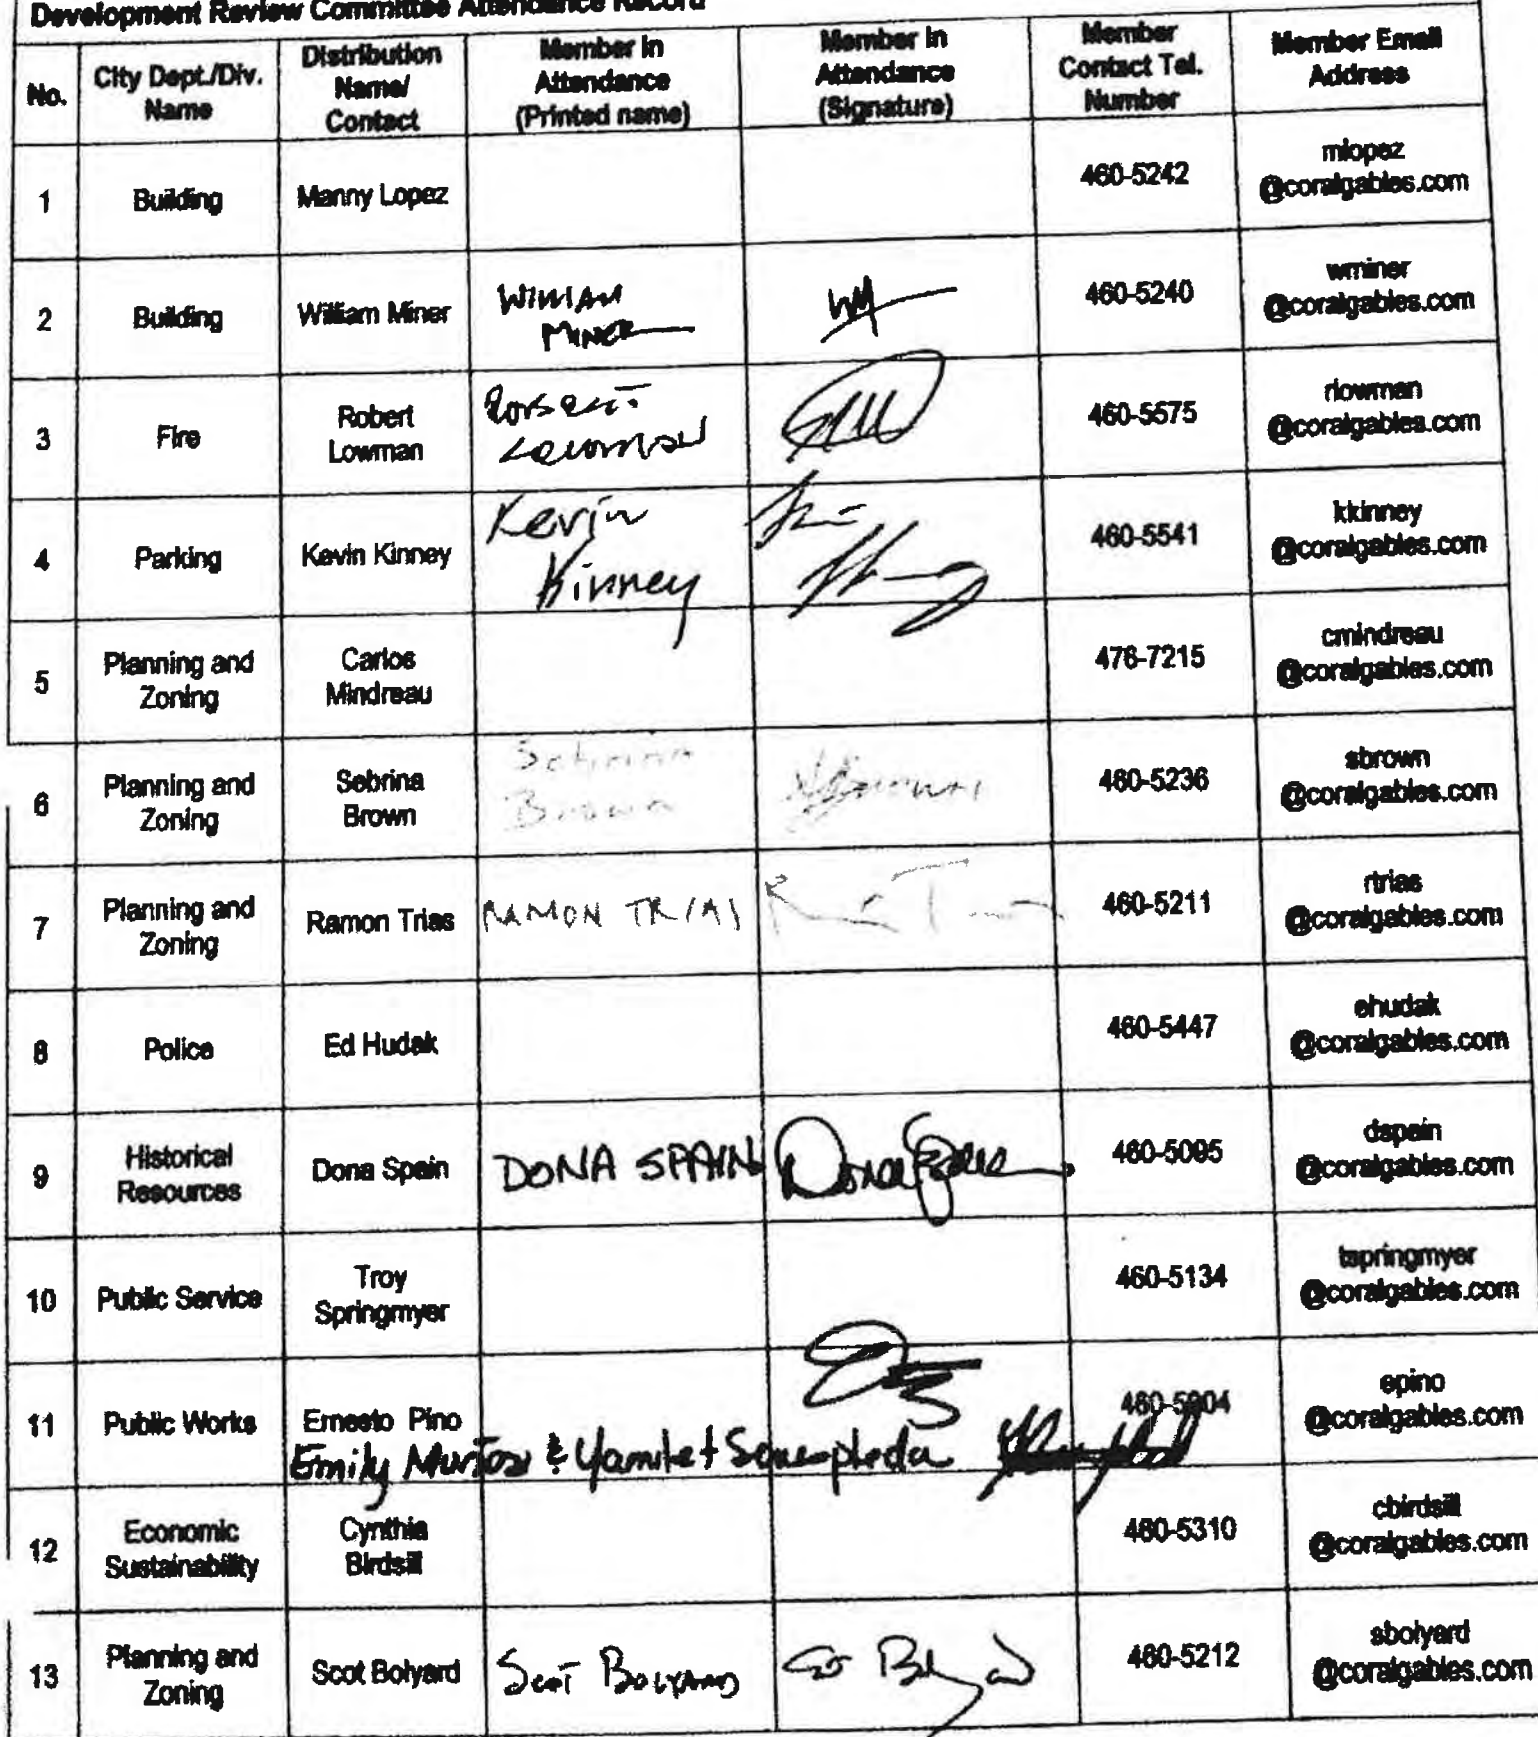 Development Review Committee Attendance Record
No.
City Dept./Div.
Name
Distribution
Name/
Contact
Member in
Attendance
(Printed name)
Member in
Attendance
(Signature)
Member
Contact Tel.
Number
Member Email
Address
1
Building
Manny Lopez
460-5242
mlopez
@coralgables.com
2
Building
William Miner
WILLIAM
MINER
WM
460-5240
wminer
@coralgables.com
3
Fire
Robert
Lowman
Robert
Lowman
460-5575
rlowman
@coralgables.com
4
Parking
Kevin Kinney
Kevin
Kinney
460-5541
kkinney
@coralgables.com
5
Planning and
Zoning
Carlos
Mindreau
476-7215
cmindreau
@coralgables.com
6
Planning and
Zoning
Sebrina
Brown
Sebrina
Brown
SBrown
460-5236
sbrown
@coralgables.com
7
Planning and
Zoning
Ramon Trias
RAMON TRIAS
460-5211
rtrias
@coralgables.com
8
Police
Ed Hudak
460-5447
ehudak
@coralgables.com
9
Historical
Resources
Dona Spain
DONA SPAIN
Dona Spain
460-5095
dspain
@coralgables.com
10
Public Service
Troy
Springmyer
460-5134
tspringmyer
@coralgables.com
11
Public Works
Ernesto Pino
460-5004
epino
@coralgables.com
Emily & Yamilet
12
Economic
Sustainability
Cynthia
Birdsill
460-5310
cbirdsill
@coralgables.com
13
Planning and
Zoning
Scot Bolyard
Scot Bolyard
460-5212
sbolyard
@coralgables.com